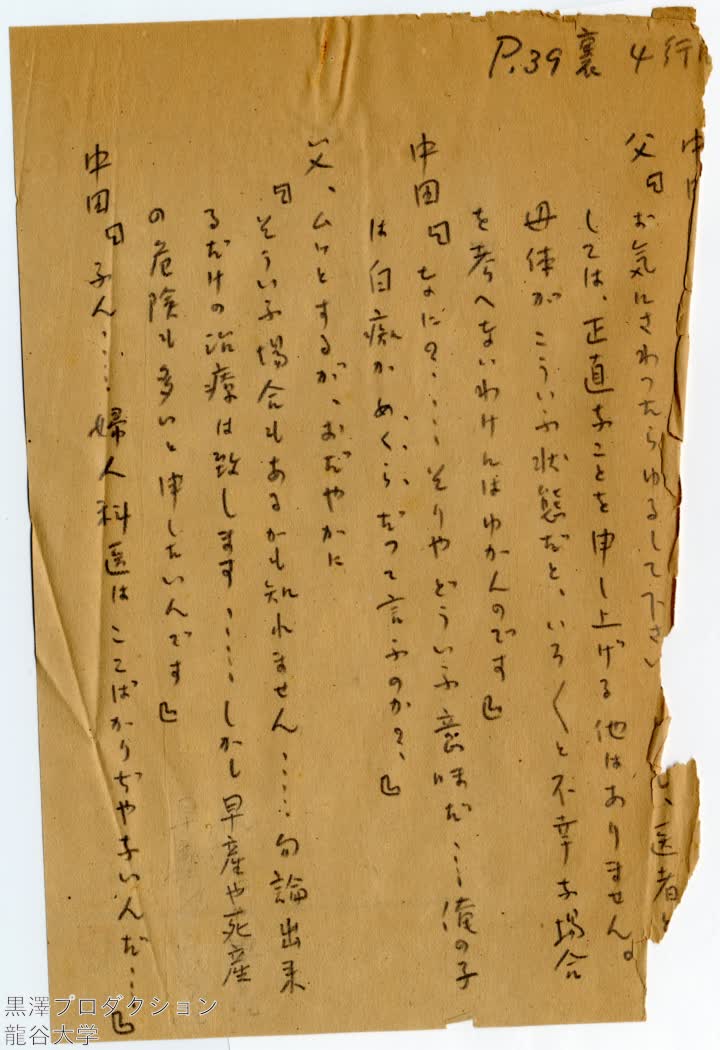 P.39 裏 4行
中田
父「お気にさわつたらゆるして下さい
、医者と
しては、正直なことを申し上げる他はありません。
母体がこういふ状態だと、いろ〱と不幸な場合
を考へないわけにはゆかんのです」
中田「なに?‥‥そりやどういふ意味だ‥‥俺の子
は白痴かめくらだつて言ふのか?」
父、ムッとするが、おだやかに
「そういふ場合もあるかも知れません‥‥勿論出来
るだけの治療は致します‥‥しかし早産や死産
の危険も多いと申したいんです」
中田「ふん‥‥婦人科医はこゝばかりぢやないんだ‥‥」
黒澤プロダクション
龍谷大学